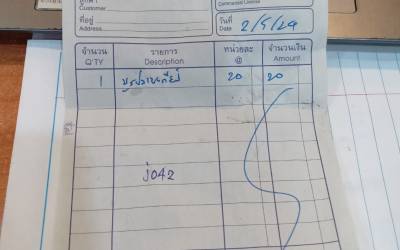 ลูกค้า
Customer
ที่อยู่
Address
Commercial License
วันที่ 2/5/29
Date
จำนวน รายการ หน่วยละ จำนวนเงิน
Q'TY Description @ Amount
1 20 20
j042